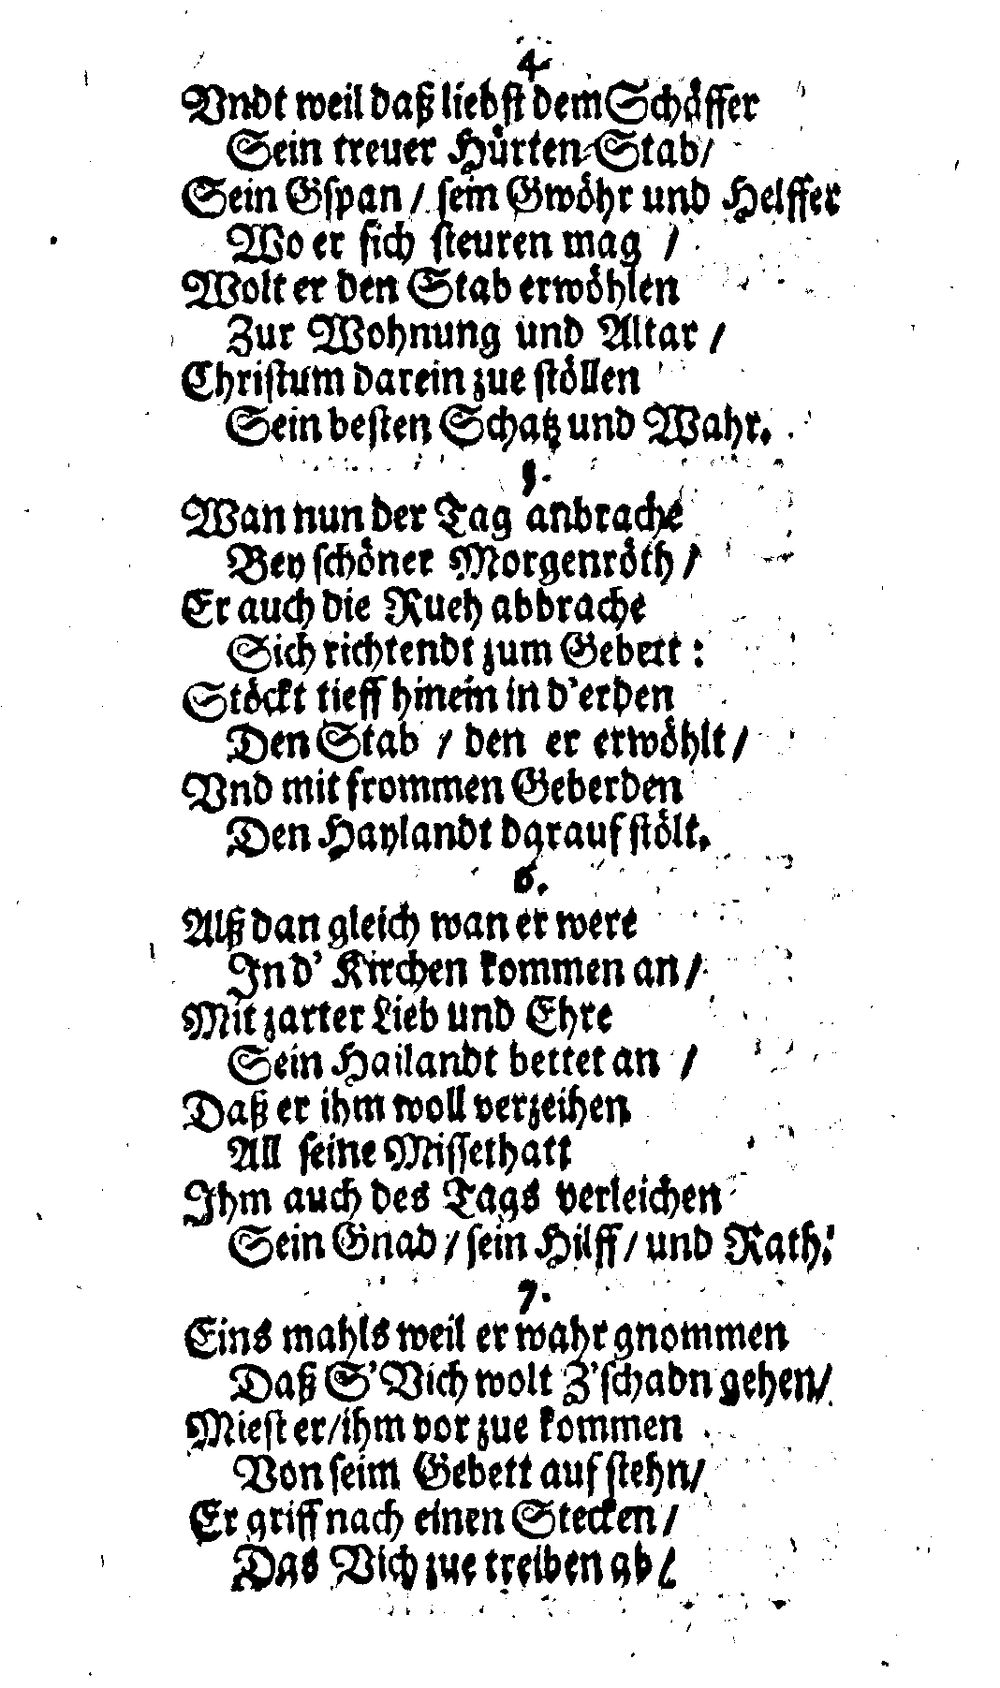 4.
Vndt weil daß liebst dem Schäffer
Sein treuer Hürten-Stab/
Sein Gspan / sein Gwöhr und Helffer
Wo er sich steuren mag /
Wolt er den Stab erwöhlen
Zur Wohnung und Altar /
Christum darein zue stöllen
Sein besten Schatz und Wahr.
5.
Wan nun der Tag anbrache
Bey schöner Morgenröth /
Er auch die Rueh abbrache
Sich richtendt zum Gebett :
Stöckt tieff hinein in d'erden
Den Stab / den er erwöhlt /
Vnd mit frommen Geberden
Den Haylandt darauf stölt.
6.
Alß dan gleich wan er were
In d' Kirchen kommen an /
Mit zarter Lieb und Ehre
Sein Hailandt bettet an /
Daß er ihm woll verzeihen
All seine Missethatt
Ihm auch des Tags verleichen
Sein Gnad / sein Hilff / und Rath.
7.
Eins mahls weil er wahr gnommen
Daß S'Vich wolt Z'schadn gehen/
Miest er/ihm vor zue kommen
Von seim Gebett auf stehn/
Er griff nach einen Stecken /
Das Vich zue treiben ab /